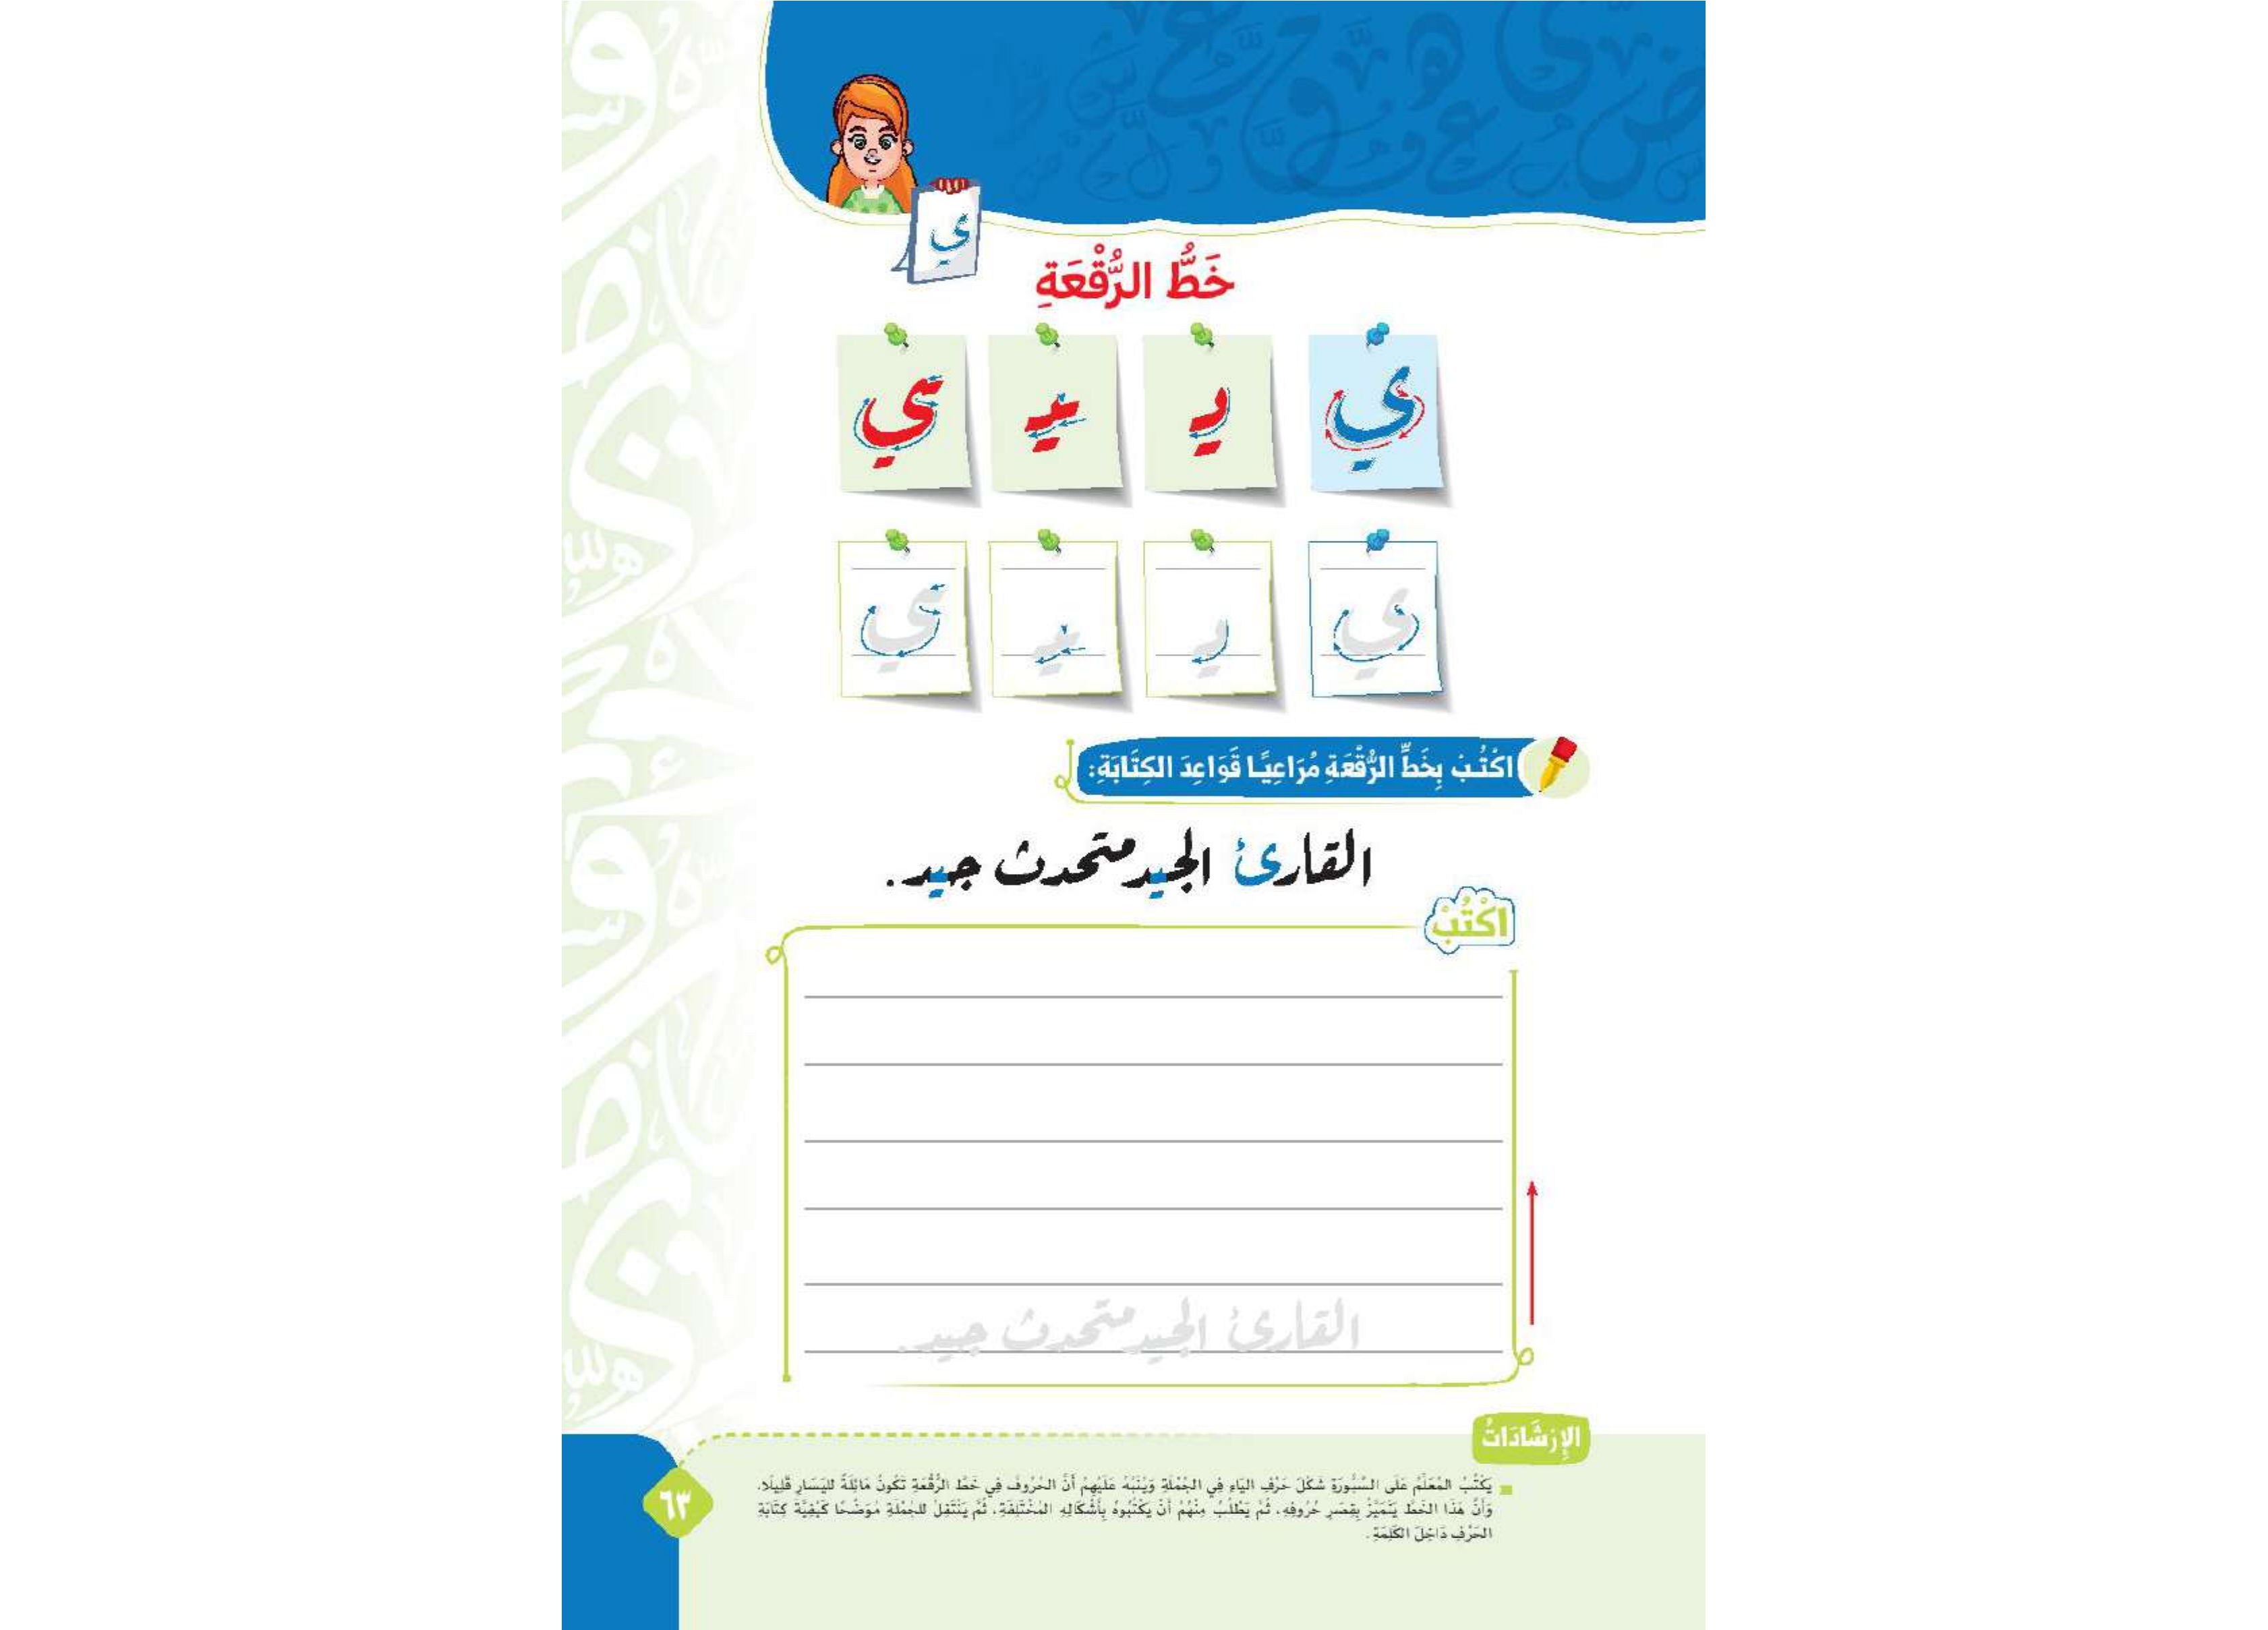 ي
خَطُّ الرُّقْعَةِ
ي يـ ـيـ ـي
ي يـ ـيـ ـي
اكْتُبْ بِخَطِّ الرُّقْعَةِ مُرَاعِيًا قَوَاعِدَ الكِتَابَةِ:
القارئ الجيد متحدث جيد.
اكْتُبْ
القارئ الجيد متحدث جيد.
الإِرْشَادَاتُ
يَكْتُبُ المُعَلِّمُ عَلَى السَّبُّورَةِ شَكْلَ حَرْفِ اليَاءِ فِي الجُمْلَةِ وَيُنَبِّهُ عَلَيْهِمْ أَنَّ الحُرُوفَ فِي خَطِّ الرُّقْعَةِ تَكُونُ مَائِلَةً لليَسَارِ قَلِيلًا،
وَأَنَّ هَذَا الخَطَّ يَتَمَيَّزُ بِقِصَرِ حُرُوفِهِ، ثُمَّ يَطْلُبُ مِنْهُمْ أَنْ يَكْتُبُوهُ بِأَشْكَالِهِ المُخْتَلِفَةِ، ثُمَّ يَنْتَقِلُ للجُمْلَةِ مُوَضِّحًا كَيْفِيَّةَ كِتَابَةِ
الحَرْفِ دَاخِلَ الكَلِمَةِ.
٦٣